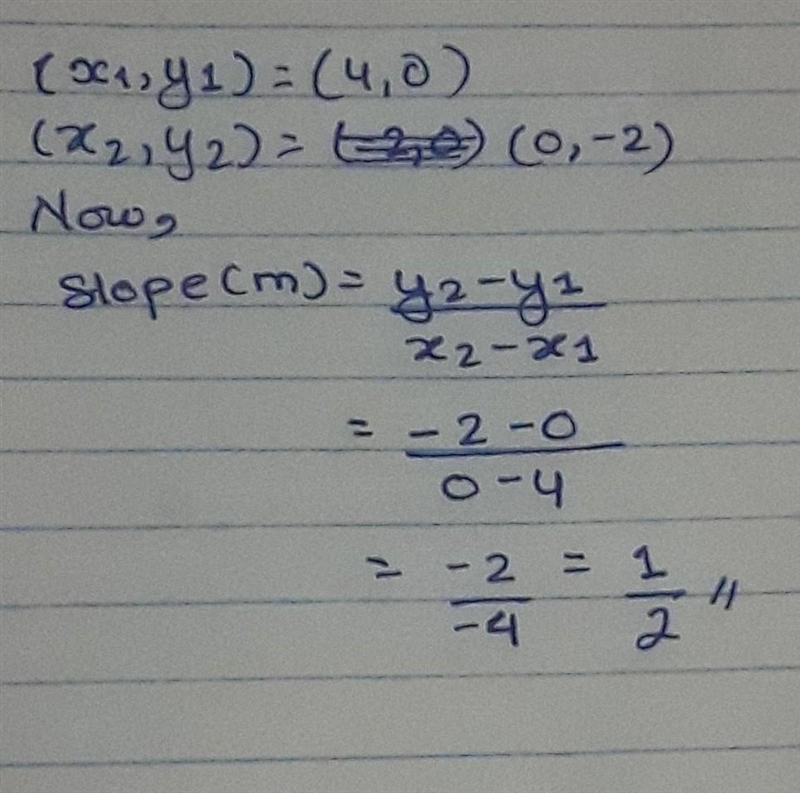 (x1, y1) = (4, 0)
(x2, y2) = (0, -2)
Now,
Slope(m) = y2 - y1
x2 - x1
= -2 - 0
0 - 4
= -2 = 1 //
-4 2